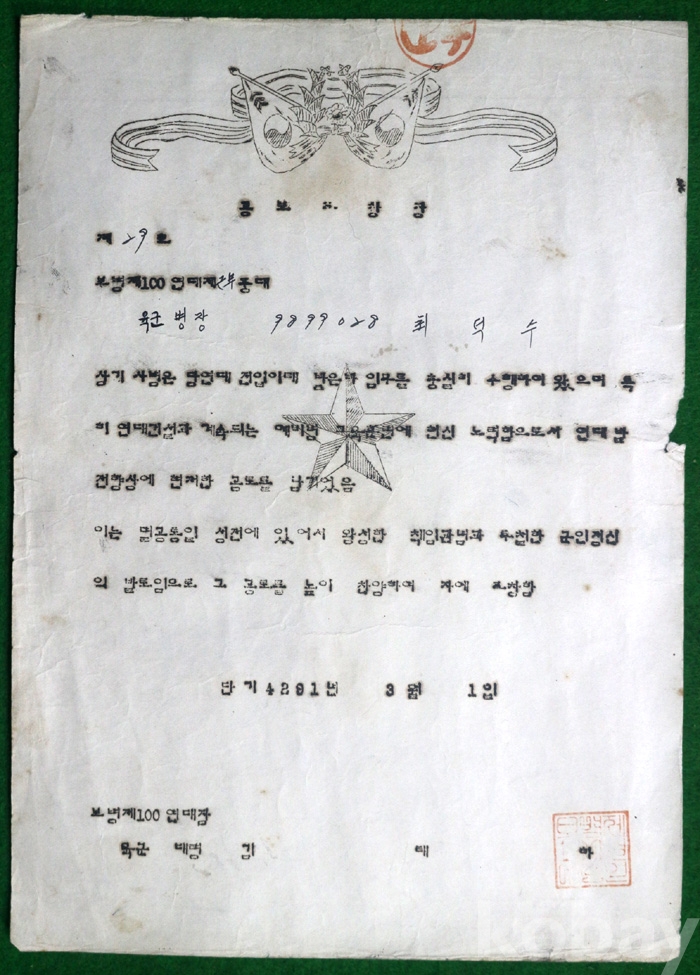 공보표창장
제 29 호
보병제100연대제 근무중대
육군 병장 9899028 최덕수
상기 사병은 당연대 전입이래 맡은바 임무를 충실히 수행하여 왔으며 특
히 연대건설과 계속되는 예비병 교육훈련에 헌신 노력함으로서 연대발
전향상에 현저한 공로를 남기였음
이는 멸공통일 성전에 있어서 왕성한 책임관념과 투철한 군인정신
의 발로임으로 그 공로를 높이 찬양하여 자에 표창함
단기 4291년 3월 1일
보병제100연대장
육군 대령 김 태
kobay